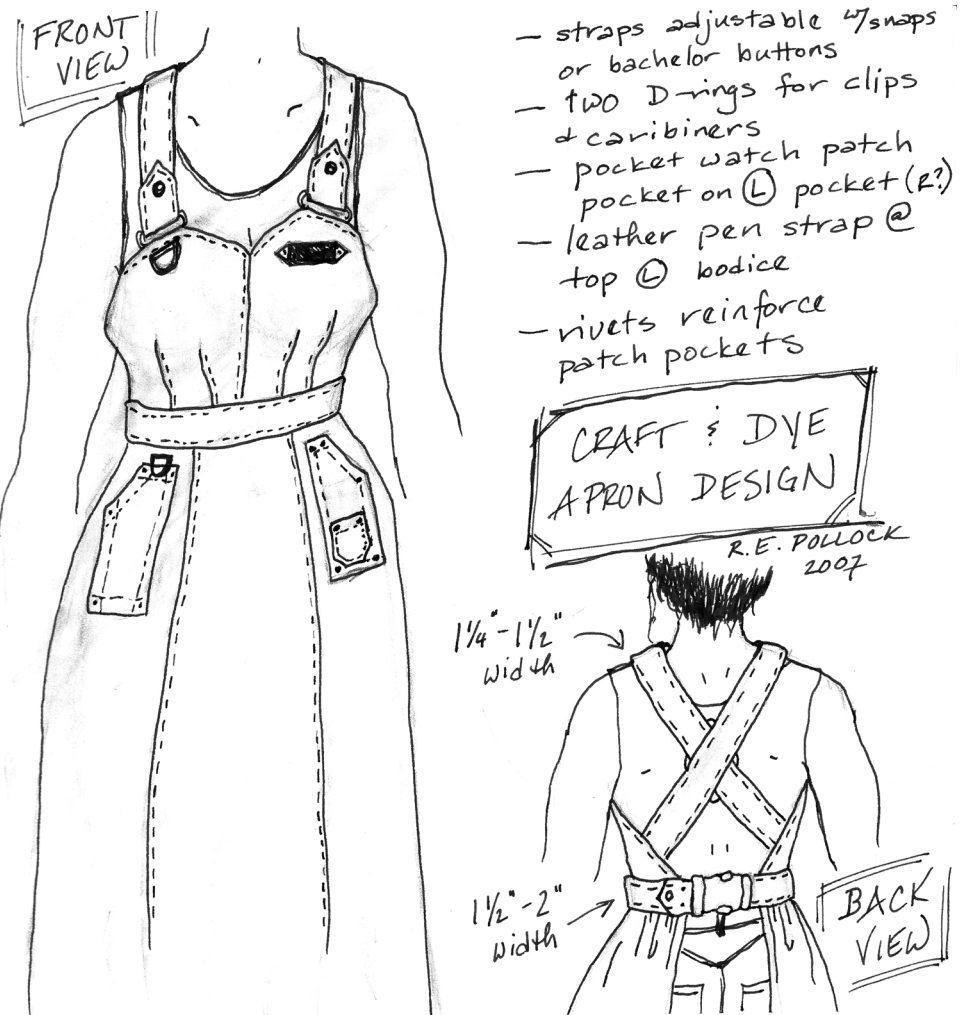 FRONT
VIEW
— straps adjustable w/snaps
or bachelor buttons
— two D-rings for clips
& caribiners
— pocket watch patch
pocket on Ⓛ pocket (R?)
— leather pen strap @
top Ⓛ bodice
— rivets reinforce
patch pockets
CRAFT & DYE
APRON DESIGN
R.E. POLLOCK
2007
1¼"-1½"
width
1½"-2"
width
BACK
VIEW